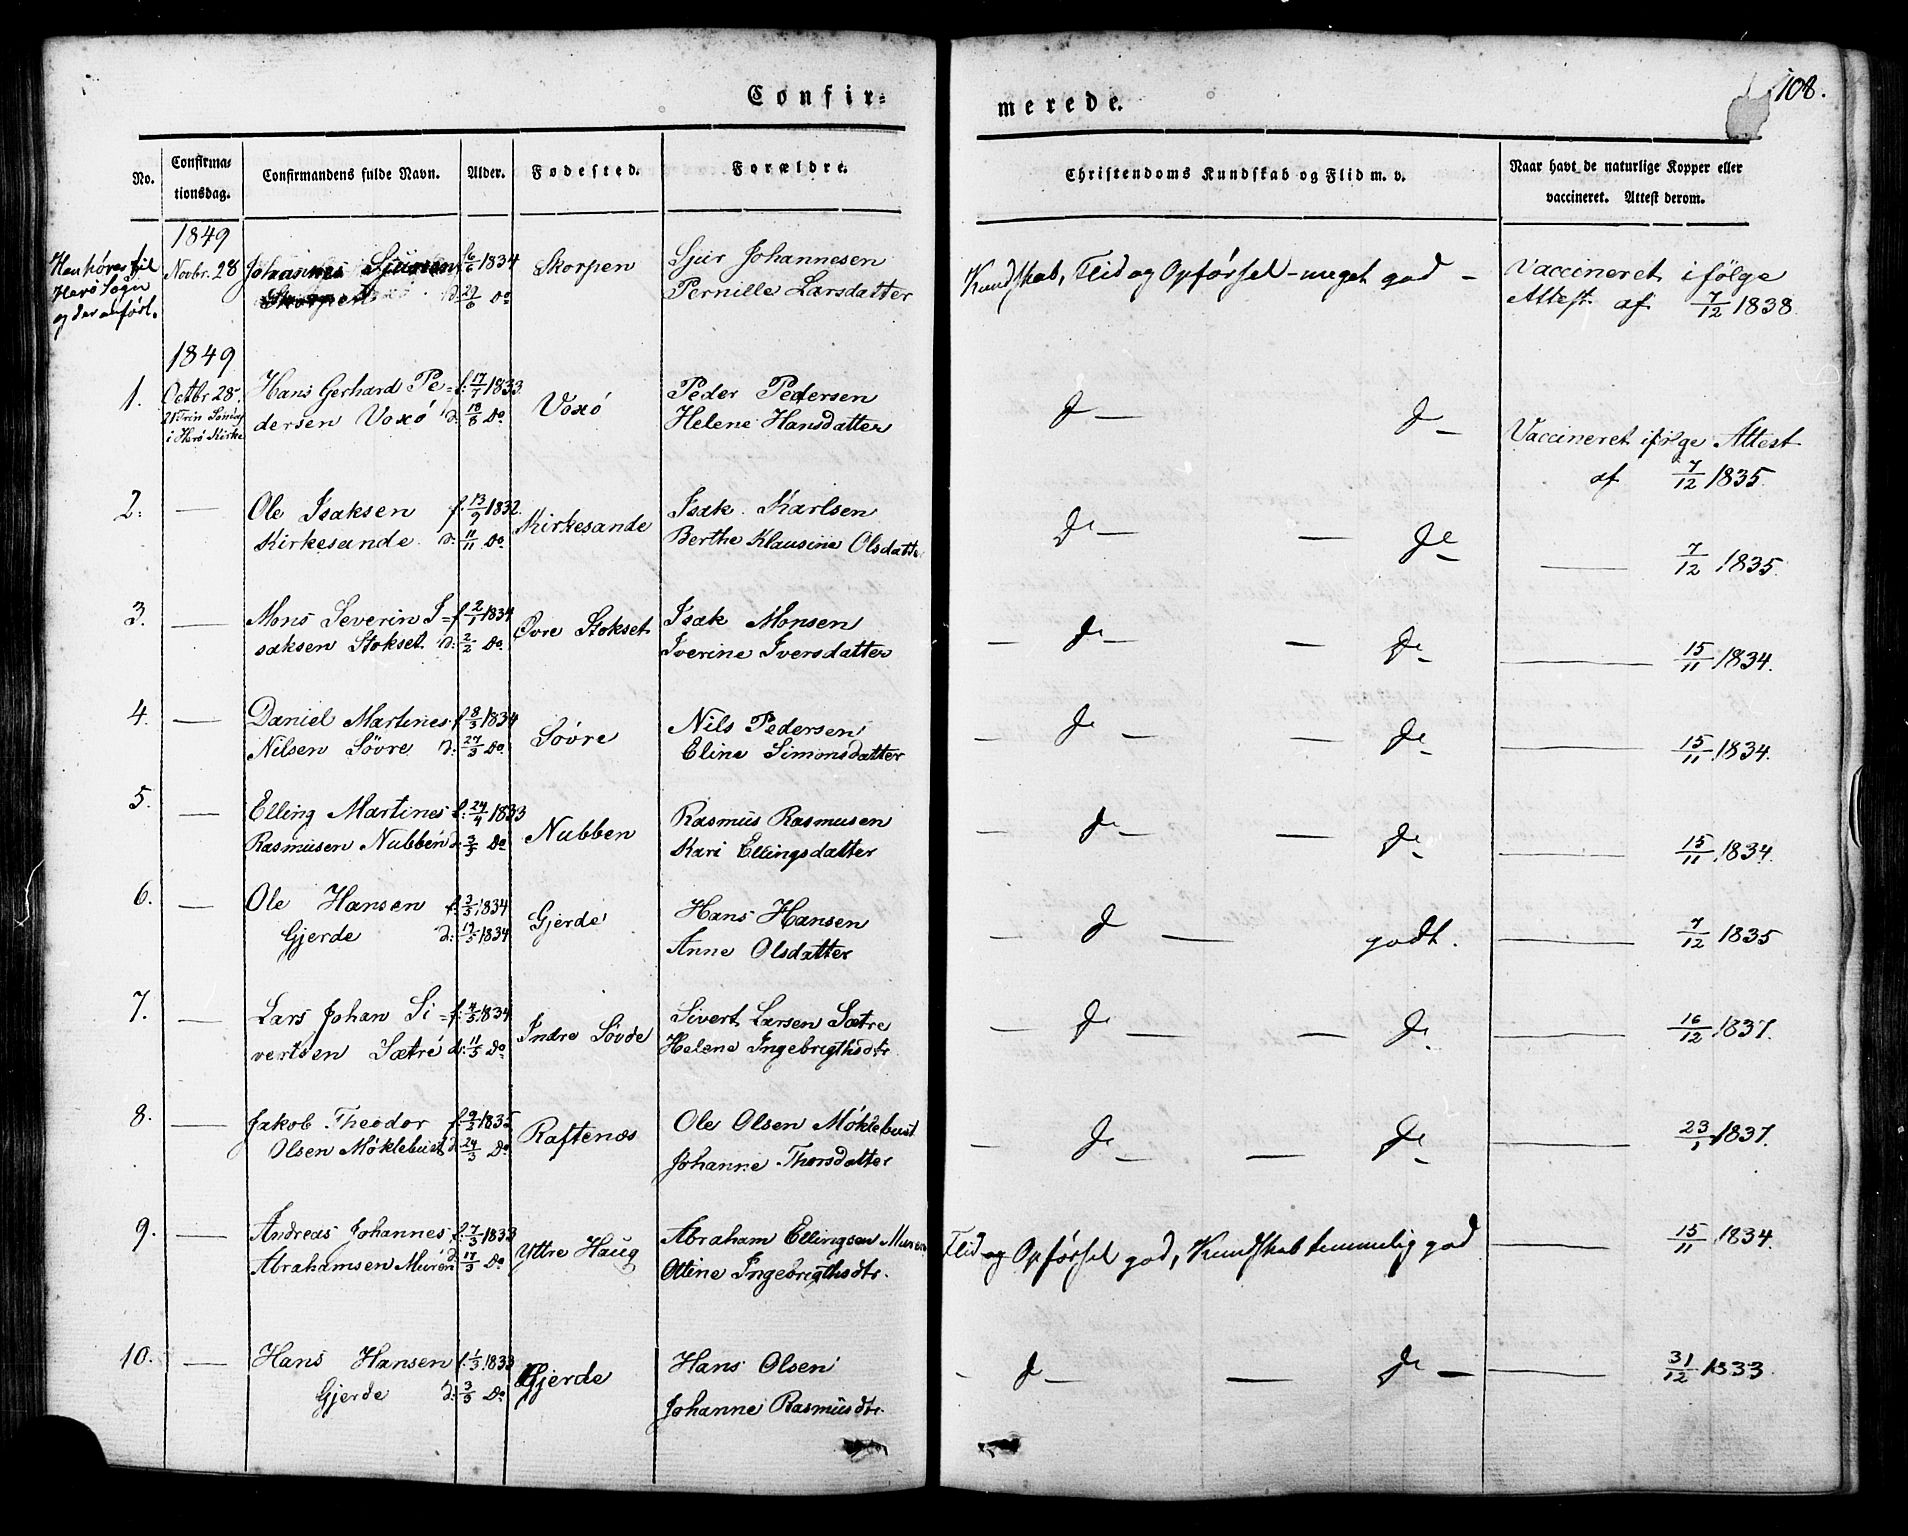 Confir-
merede.
108.
No.
Confirma-
tionsdag.
Confirmandens fulde Navn.
Alder.
Fødested.
Forældre.
Christendoms Kundskab og Flid m. v.
Naar havt de naturlige Kopper eller
vaccineret. Attest derom.
Han høres til
Herö Sogn
og der anført.
1849
Novbr. 28
Johannes Sjursen 6/6 1834
Skorpen d. 29/6 Do
Skorpen
Sjur Johannesen
Pernille Larsdatter
Kundskab, Flid og Opførsel - meget god -
Vaccineret ifölge
Attest af 7/12 1838
1849
1.
Octbr 28.
21 Trin Søndag
i Herö Kirke
Hans Gerhard Pe= f: 17/7 1833
dersen Voxö d. 18/8 Do
Voxö
Peder Pedersen
Helene Hansdatter
do — do —
Vaccineret ifølge Attest
af 7/12 1835
2. —
Ole Isaksen f. 13/9 1832
Kirkesande d. 11/11 Do
Kirkesande
Isak Karlsen
Berthe Klausine Olsdatter
do — — do —
— 7/12 1835
3. —
Mons Severin I= f. 2/1 1834
saksen Stokset d: 2/2 Do
Øvre Stokset
Isak Monsen
Iverine Iversdatter
— do — — do —
— 15/11 1834.
4. —
Daniel Martines f. 8/3 1834
Nilsen Sövre d: 27/3 Do
Sövre
Nils Pedersen
Eline Simonsdatter
— do — — do —
— 15/11 1834.
5. —
Elling Martines f: 24/4 1833
Rasmusen Nubben d. 3/5 Do
Nubben
Rasmus Rasmusen
Kari Ellingsdatter
— do — — do —
— 15/11 1834.
6. —
Ole Hansen f: 3/5 1834
Gjerde d: 19/5 1834
Gjerde
Hans Hansen
Anne Olsdatter
— do — godt.
— 7/12 1835
7. —
Lars Johan Si= f: 4/5 1834
vertsen Sætre d: 11/5 Do
Indre Søvde
Sivert Larsen Sætre
Helene Ingebrigthsdtr
— do — — do —
— 16/12 1837.
8. —
Jakob Theodor f. 9/2 1835
Olsen Møklebust d. 24/3 Do
Raftenæs
Ole Olsen Møklebust
Johanne Thorsdatter
— do — — do —
— 23/1 1837.
9. —
Andreas Johannes f. 7/3 1833
Abrahamsen Muren d. 17/3 Do
Yttre Haug
Abraham Ellingsen Muren
Oline Ingebrigthsdtr.
Flid og Opførsel god, Kundskab temmelig god
— 15/11 1834.
10. —
Hans Hansen f. 1/3 1833
Gjerde d: 3/3 Do
Gjerde
Hans Olsen
Johanne Rasmusdtr.
- do — — do —
— 31/12 1833.